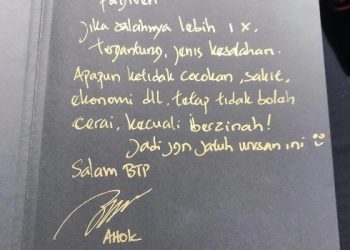 Jika salahnya lebih 1x,
tergantung, jenis kesalahan.
Apapun ketidak cocokan, sakit,
ekonomi dll. tetap tidak boleh
cerai, kecuali berzinah!
Jadi jgn jatuh urusan ini
Salam BTP
AHOK